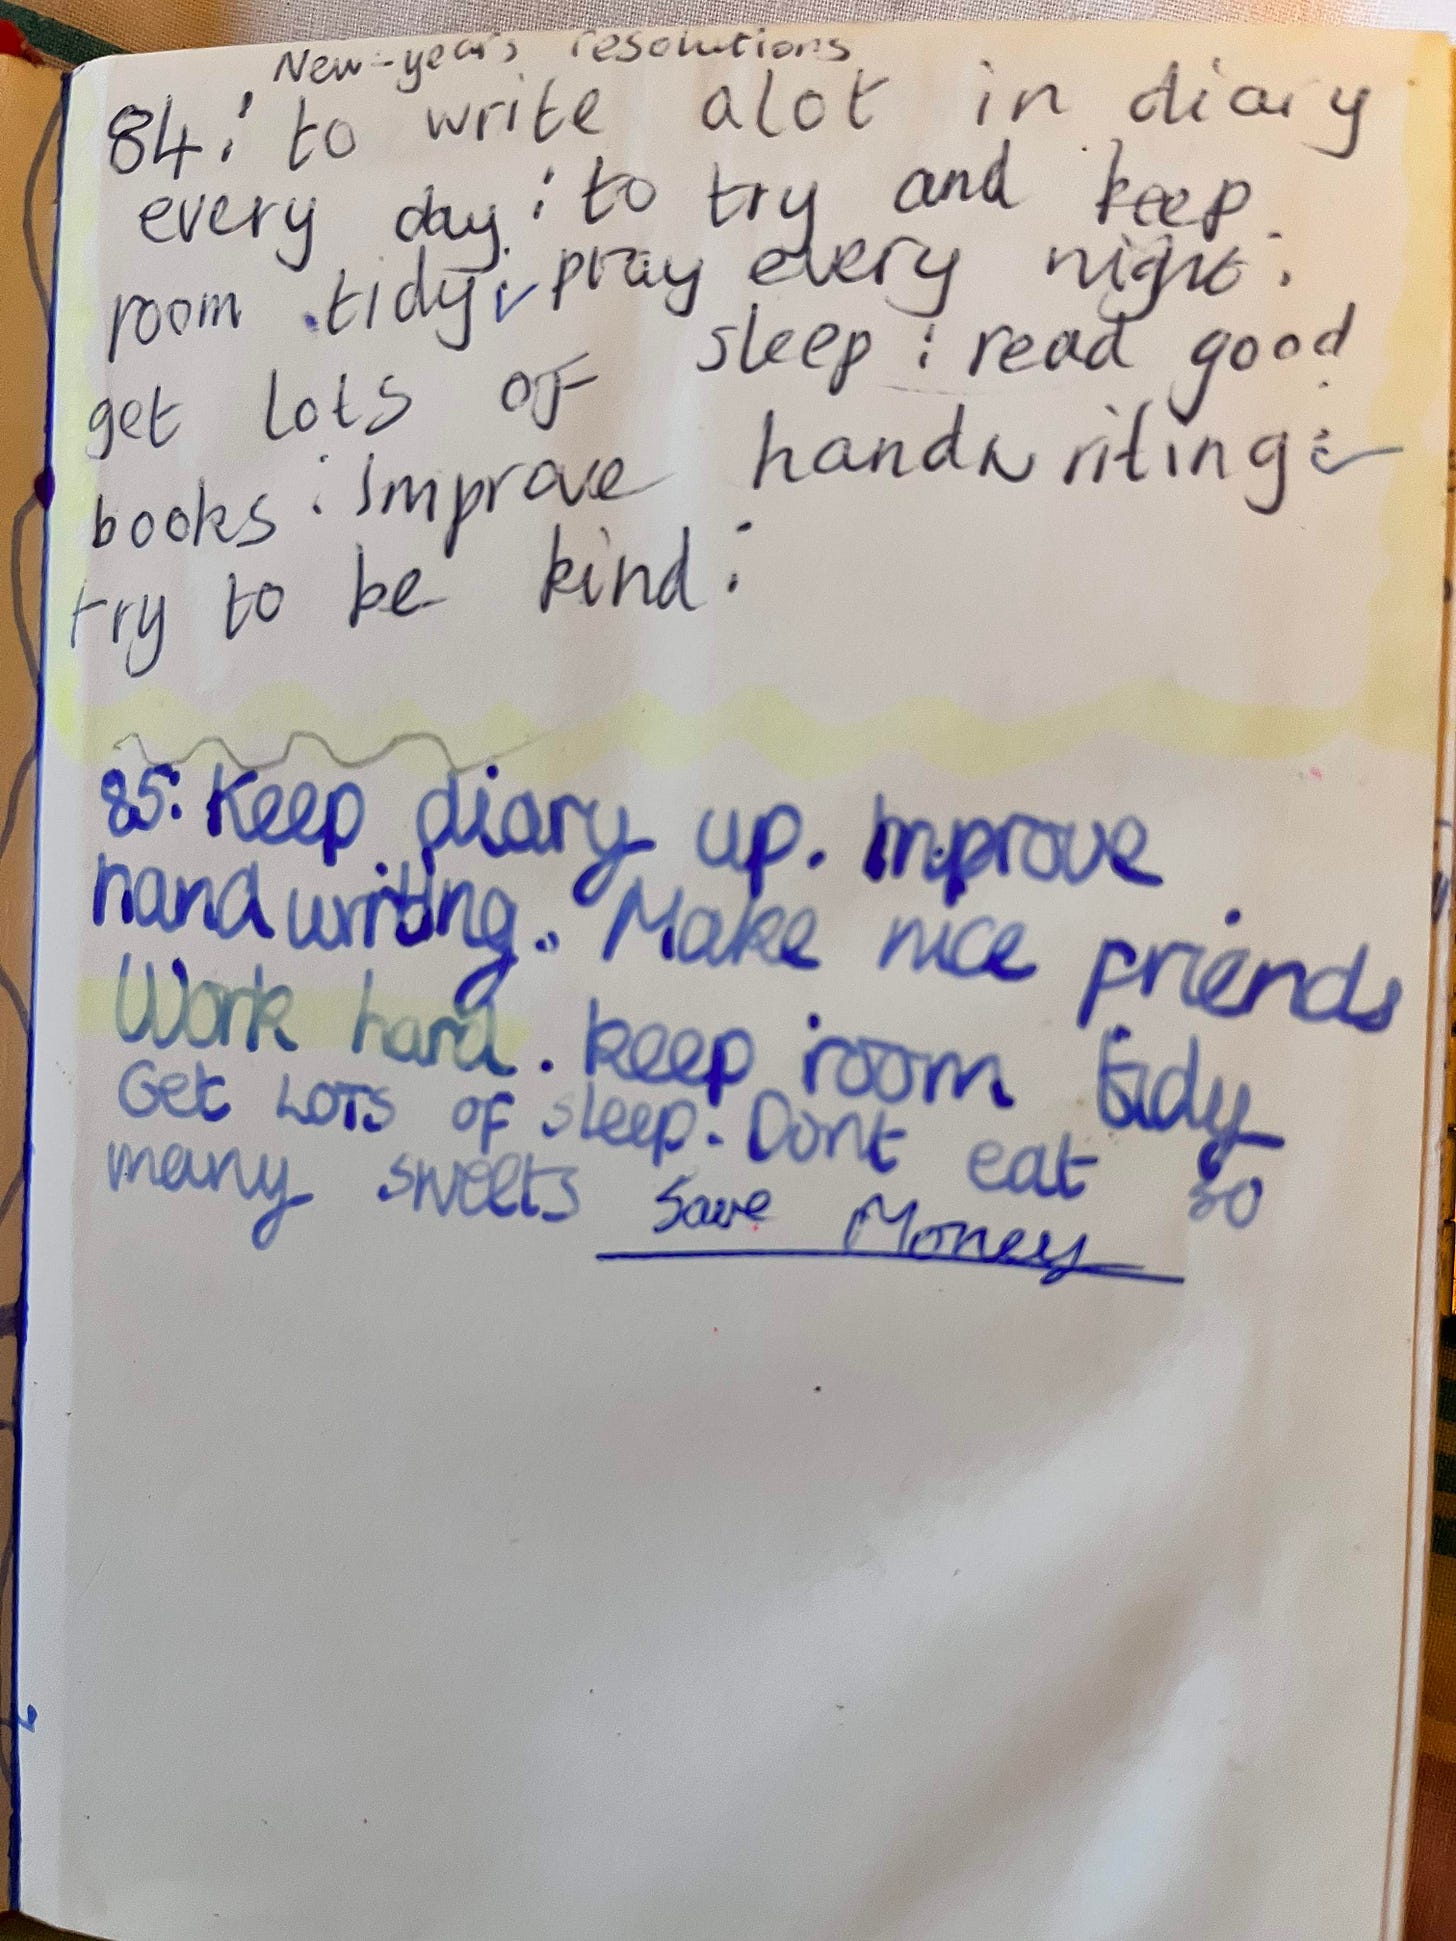 New-years resolutions
84: to write alot in diary
every day: to try and keep
room tidy: pray every night:
get lots of sleep: read good
books: improve handwriting:
try to be kind:
85: Keep diary up. Improve
handwriting. Make nice friends
Work hard. keep room tidy
Get LOTS OF sleep. Dont eat so
many sweets Save Money